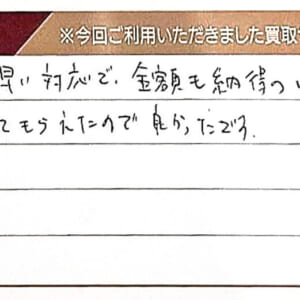 ※今回ご利用いただきました買取
早い対応で、金額も納得のい
てもらえたので良かったです.